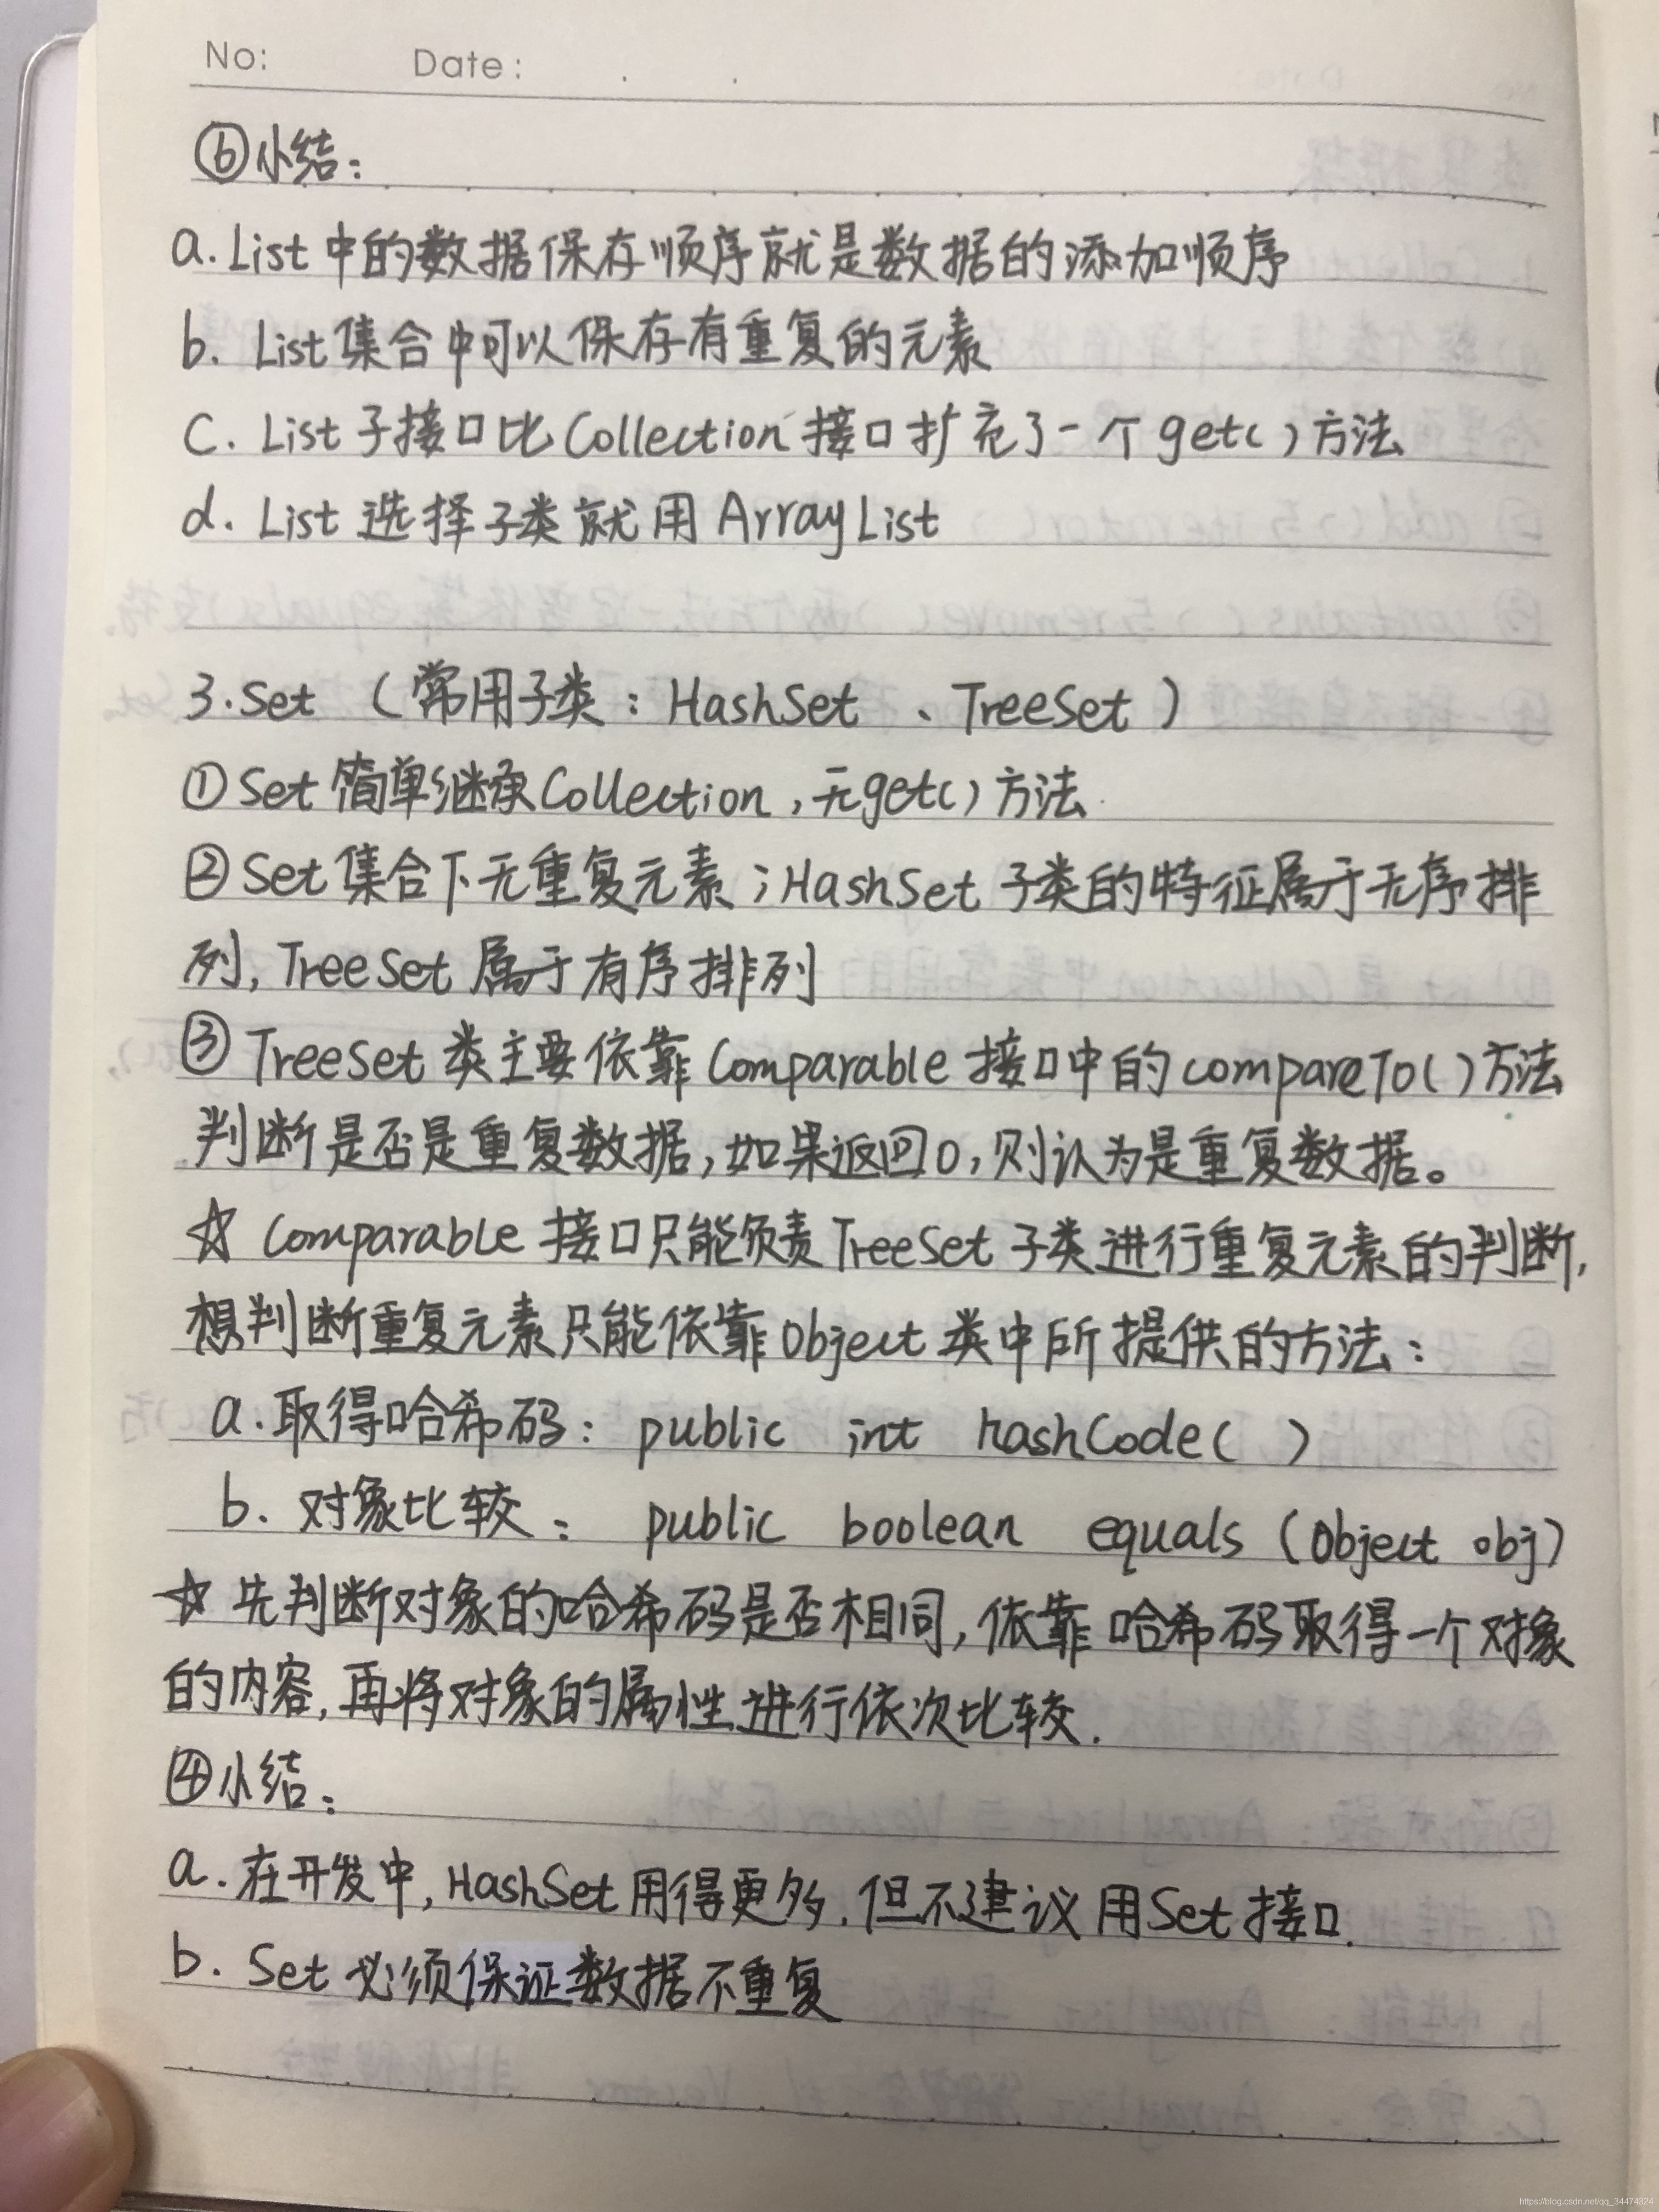 No: Date: . .
⑥小结:
a. List 中的数据保存顺序就是数据的添加顺序
b. List 集合中可以保存有重复的元素
c. List 子接口比 Collection 接口扩充了一个 get() 方法
d. List 选择子类就用 ArrayList
3. Set (常用子类: HashSet 、TreeSet)
① Set 简单继承Collection, 无get()方法.
② Set 集合下无重复元素; HashSet 子类的特征属于无序排
列, TreeSet 属于有序排列
③ TreeSet 类主要依靠 Comparable 接口中的 compareTo()方法
判断是否是重复数据,如果返回0,则认为是重复数据。
☆ Comparable 接口只能负责TreeSet 子类进行重复元素的判断,
想判断重复元素只能依靠Object类中所提供的方法:
a. 取得哈希码: public int hashCode( )
b. 对象比较: public boolean equals (Object obj)
☆ 先判断对象的哈希码是否相同, 依靠哈希码取得一个对象
的内容, 再将对象的属性进行依次比较.
④小结:
a. 在开发中, HashSet 用得更多. 但不建议用Set接口.
b. Set 必须保证数据不重复
https://blog.csdn.net/qq_34474324